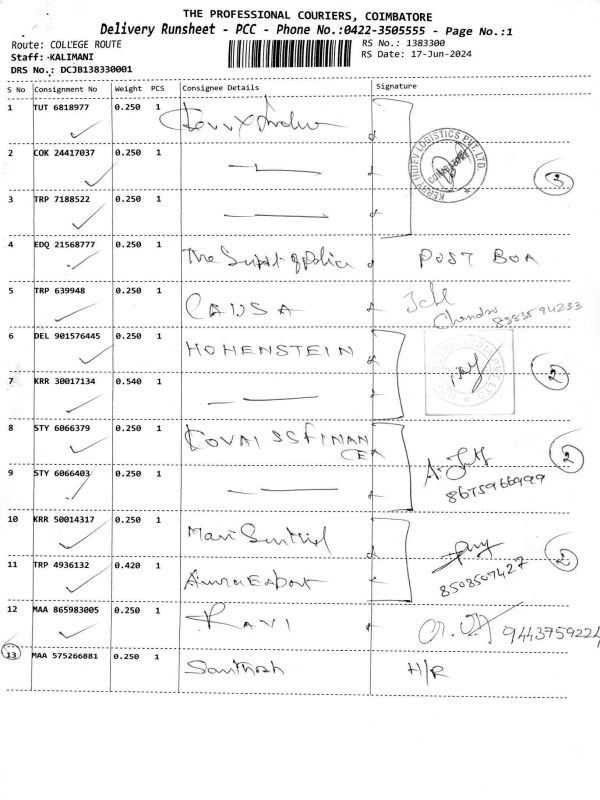 THE PROFESSIONAL COURIERS, COIMBATORE
Delivery Runsheet - PCC - Phone No.:0422-3505555 - Page No.:1
Route: COLLEGE ROUTE RS No.: 1383300
Staff: KALIMANI RS Date: 17-Jun-2024
DRS No.: DCJB138330001
S No Consignment No Weight PCS Consignee Details Signature
1 TUT 6818977 0.250 1
KERRY INDEV LOGISTICS PVT. LTD.
2 COK 24417037 0.250 1
3
3 TRP 7188522 0.250 1
4 EDQ 21568777 0.250 1 The Supdt of Police POST BOX
5 TRP 639948 0.250 1
Chandru
6 DEL 901576445 0.250 1 HOHENSTEIN
2
7 KRR 30017134 0.540 1
8 STY 6066379 0.250 1 KOVAI SS FINAN
2
9 STY 6066403 0.250 1
8675966999
10 KRR 50014317 0.250 1 Mari
2
11 TRP 4936132 0.420 1 Export
8508507427
12 MAA 865983005 0.250 1 RAVI 9443759224
13 MAA 575266881 0.250 1 Santhosh H/R